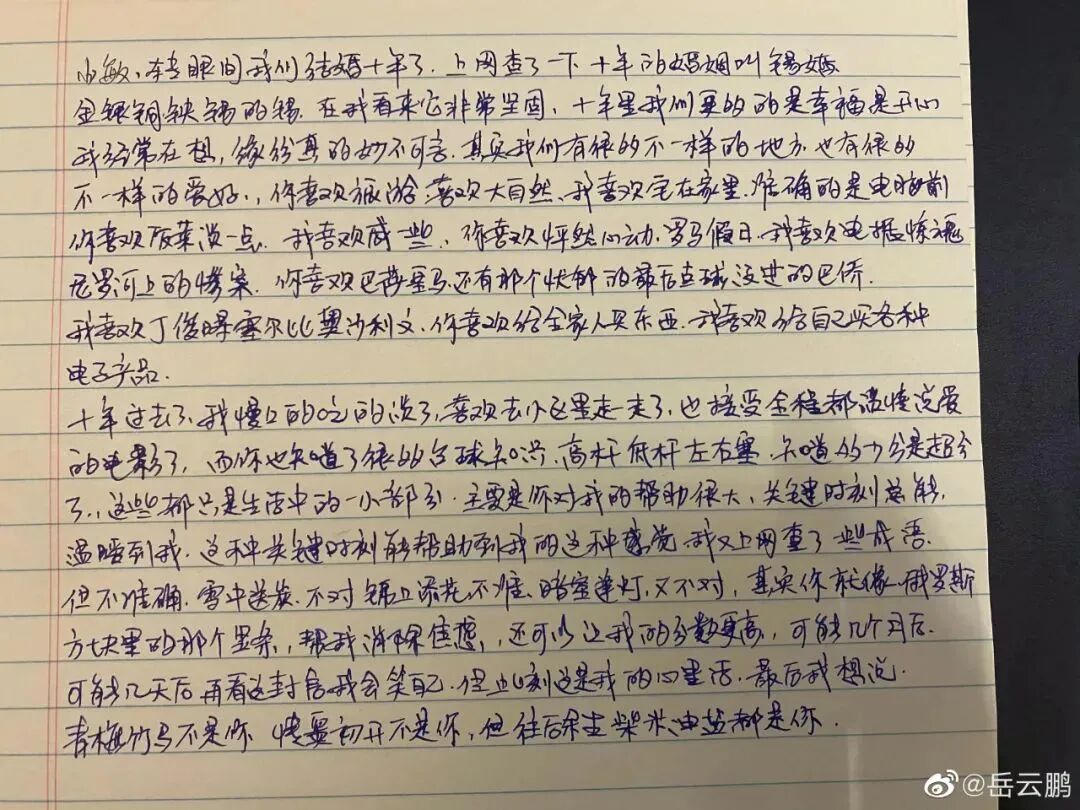 小敏、转眼间我们结婚十年了.上网查了一下十年的婚姻叫锡婚
金银铜铁锡的锡.在我看来它非常坚固,十年里我们更多的是幸福是开心
我经常在想,缘分真的妙不可言.其实我们有很多不一样的地方.也有很多
不一样的爱好.,你喜欢旅游.喜欢大自然、我喜欢宅在家里.准确的是电脑前
你喜欢饭菜淡一点.我喜欢咸一些、你喜欢怦然心动.罗马假日.我喜欢电锯惊魂
尼罗河上的惨案.你喜欢巴蒂罗马.还有那个忧郁的最后点球没进的巴乔.
我喜欢丁俊晖塞尔比奥沙利文.你喜欢给全家人买东西.我喜欢给自己买各种
电子产品.
十年过去了.我慢慢的吃的淡了,喜欢去小区里走一走了,也接受全程都谈情说爱
的电影了,而你也知道了很多台球知识.高杆低杆左右塞.知道多少分是超分
了.,这些都只是生活中的一小部分.主要是你对我的帮助很大、关键时刻总能,
温暖到我.这种关键时刻能帮助到我的这种感觉.我又上网查了些成语.
但不准确.雪中送炭.不对锦上添花.不准、暗室逢灯,又不对,其实你就像俄罗斯
方块里的那个竖条.,帮我消除焦虑.,还可以让我的分数更高,可能几个月后.
可能几天后再看这封信我会笑自己.但此刻这是我的心生活.最后我想说.
青梅竹马不是你 情窦初开不是你,但往后余生柴米油盐都是你.
@岳云鹏